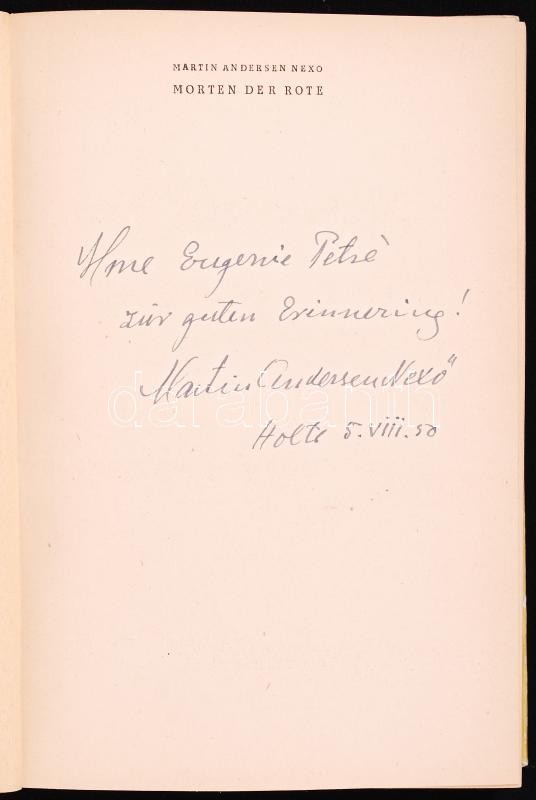 MARTIN ANDERSEN NEXO
MORTEN DER ROTE
Mme Eugenie Petré
zür guten Erinnering!
Martin Andersen Nexö
darabanth
Holte 5.VIII.50